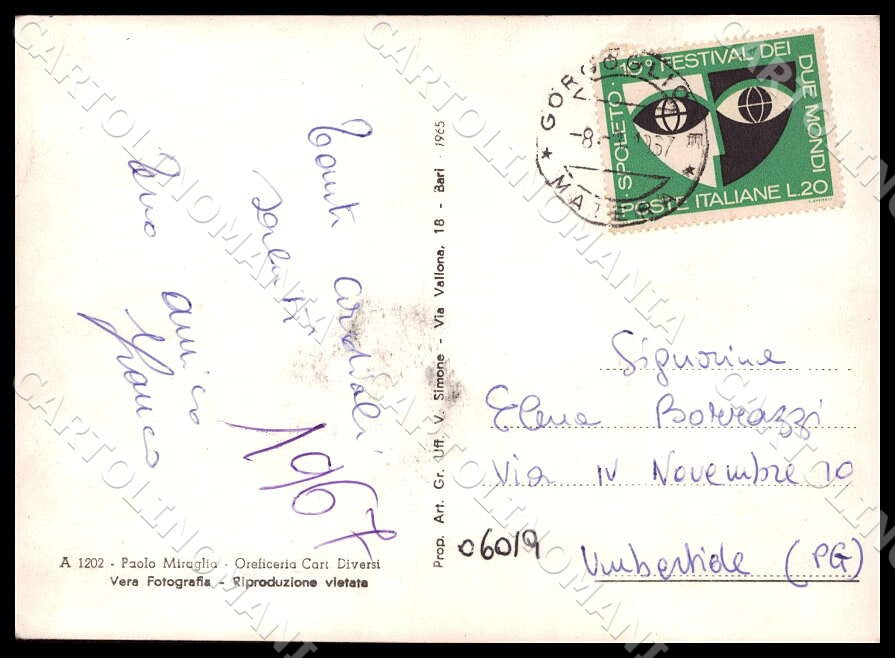 Tanti cordiali
saluti
tuo amico
Franco
1967
A 1202 - Paolo Miraglia - Oreficeria Cart Diversi
Vera Fotografia - Riproduzione vietata
Prop. Art. Gr. Uff. V. Simone - Via Vallona, 18 - Bari - 1965
GORGOGLIONE
MATERA
SPOLETO · 10° FESTIVAL DEI DUE MONDI
POSTE ITALIANE L.20
Signorina
Elena Borrazzi
Via IV Novembre 10
06019
Umbertide (PG)
CARTOLINOMANIA